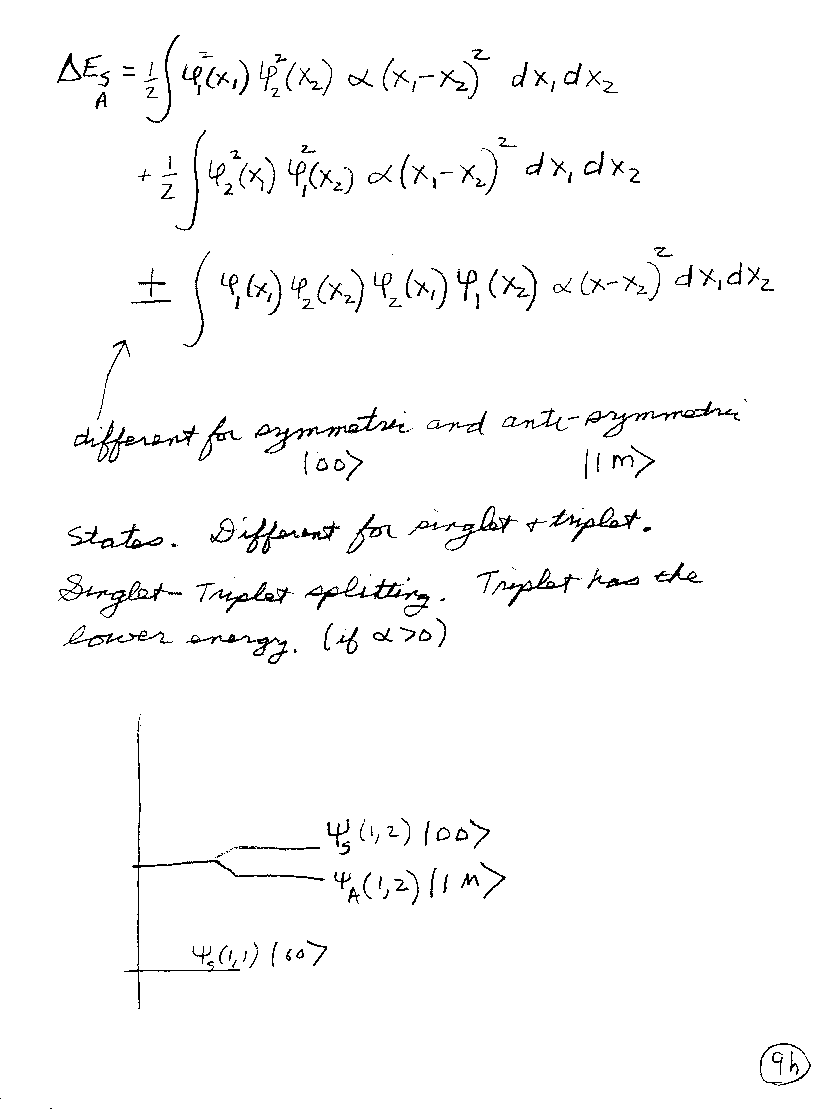 ΔE_S = ½ ∫ φ₁²(x₁) φ₂²(x₂) α (x₁-x₂)² dx₁ dx₂
A
+ ½ ∫ φ₂²(x₁) φ₁²(x₂) α (x₁-x₂)² dx₁ dx₂
± ∫ φ₁(x₁) φ₂(x₂) φ₂(x₁) φ₁(x₂) α (x-x₂)² dx₁ dx₂
different for symmetric and anti-symmetric
|00⟩ |1M⟩
States. Different for singlet + triplet.
Singlet-Triplet splitting. Triplet has the
lower energy. (if α>0)
Ψ_S(1,2) |00⟩
Ψ_A(1,2) |1M⟩
Ψ_S(1,1) |00⟩
9h